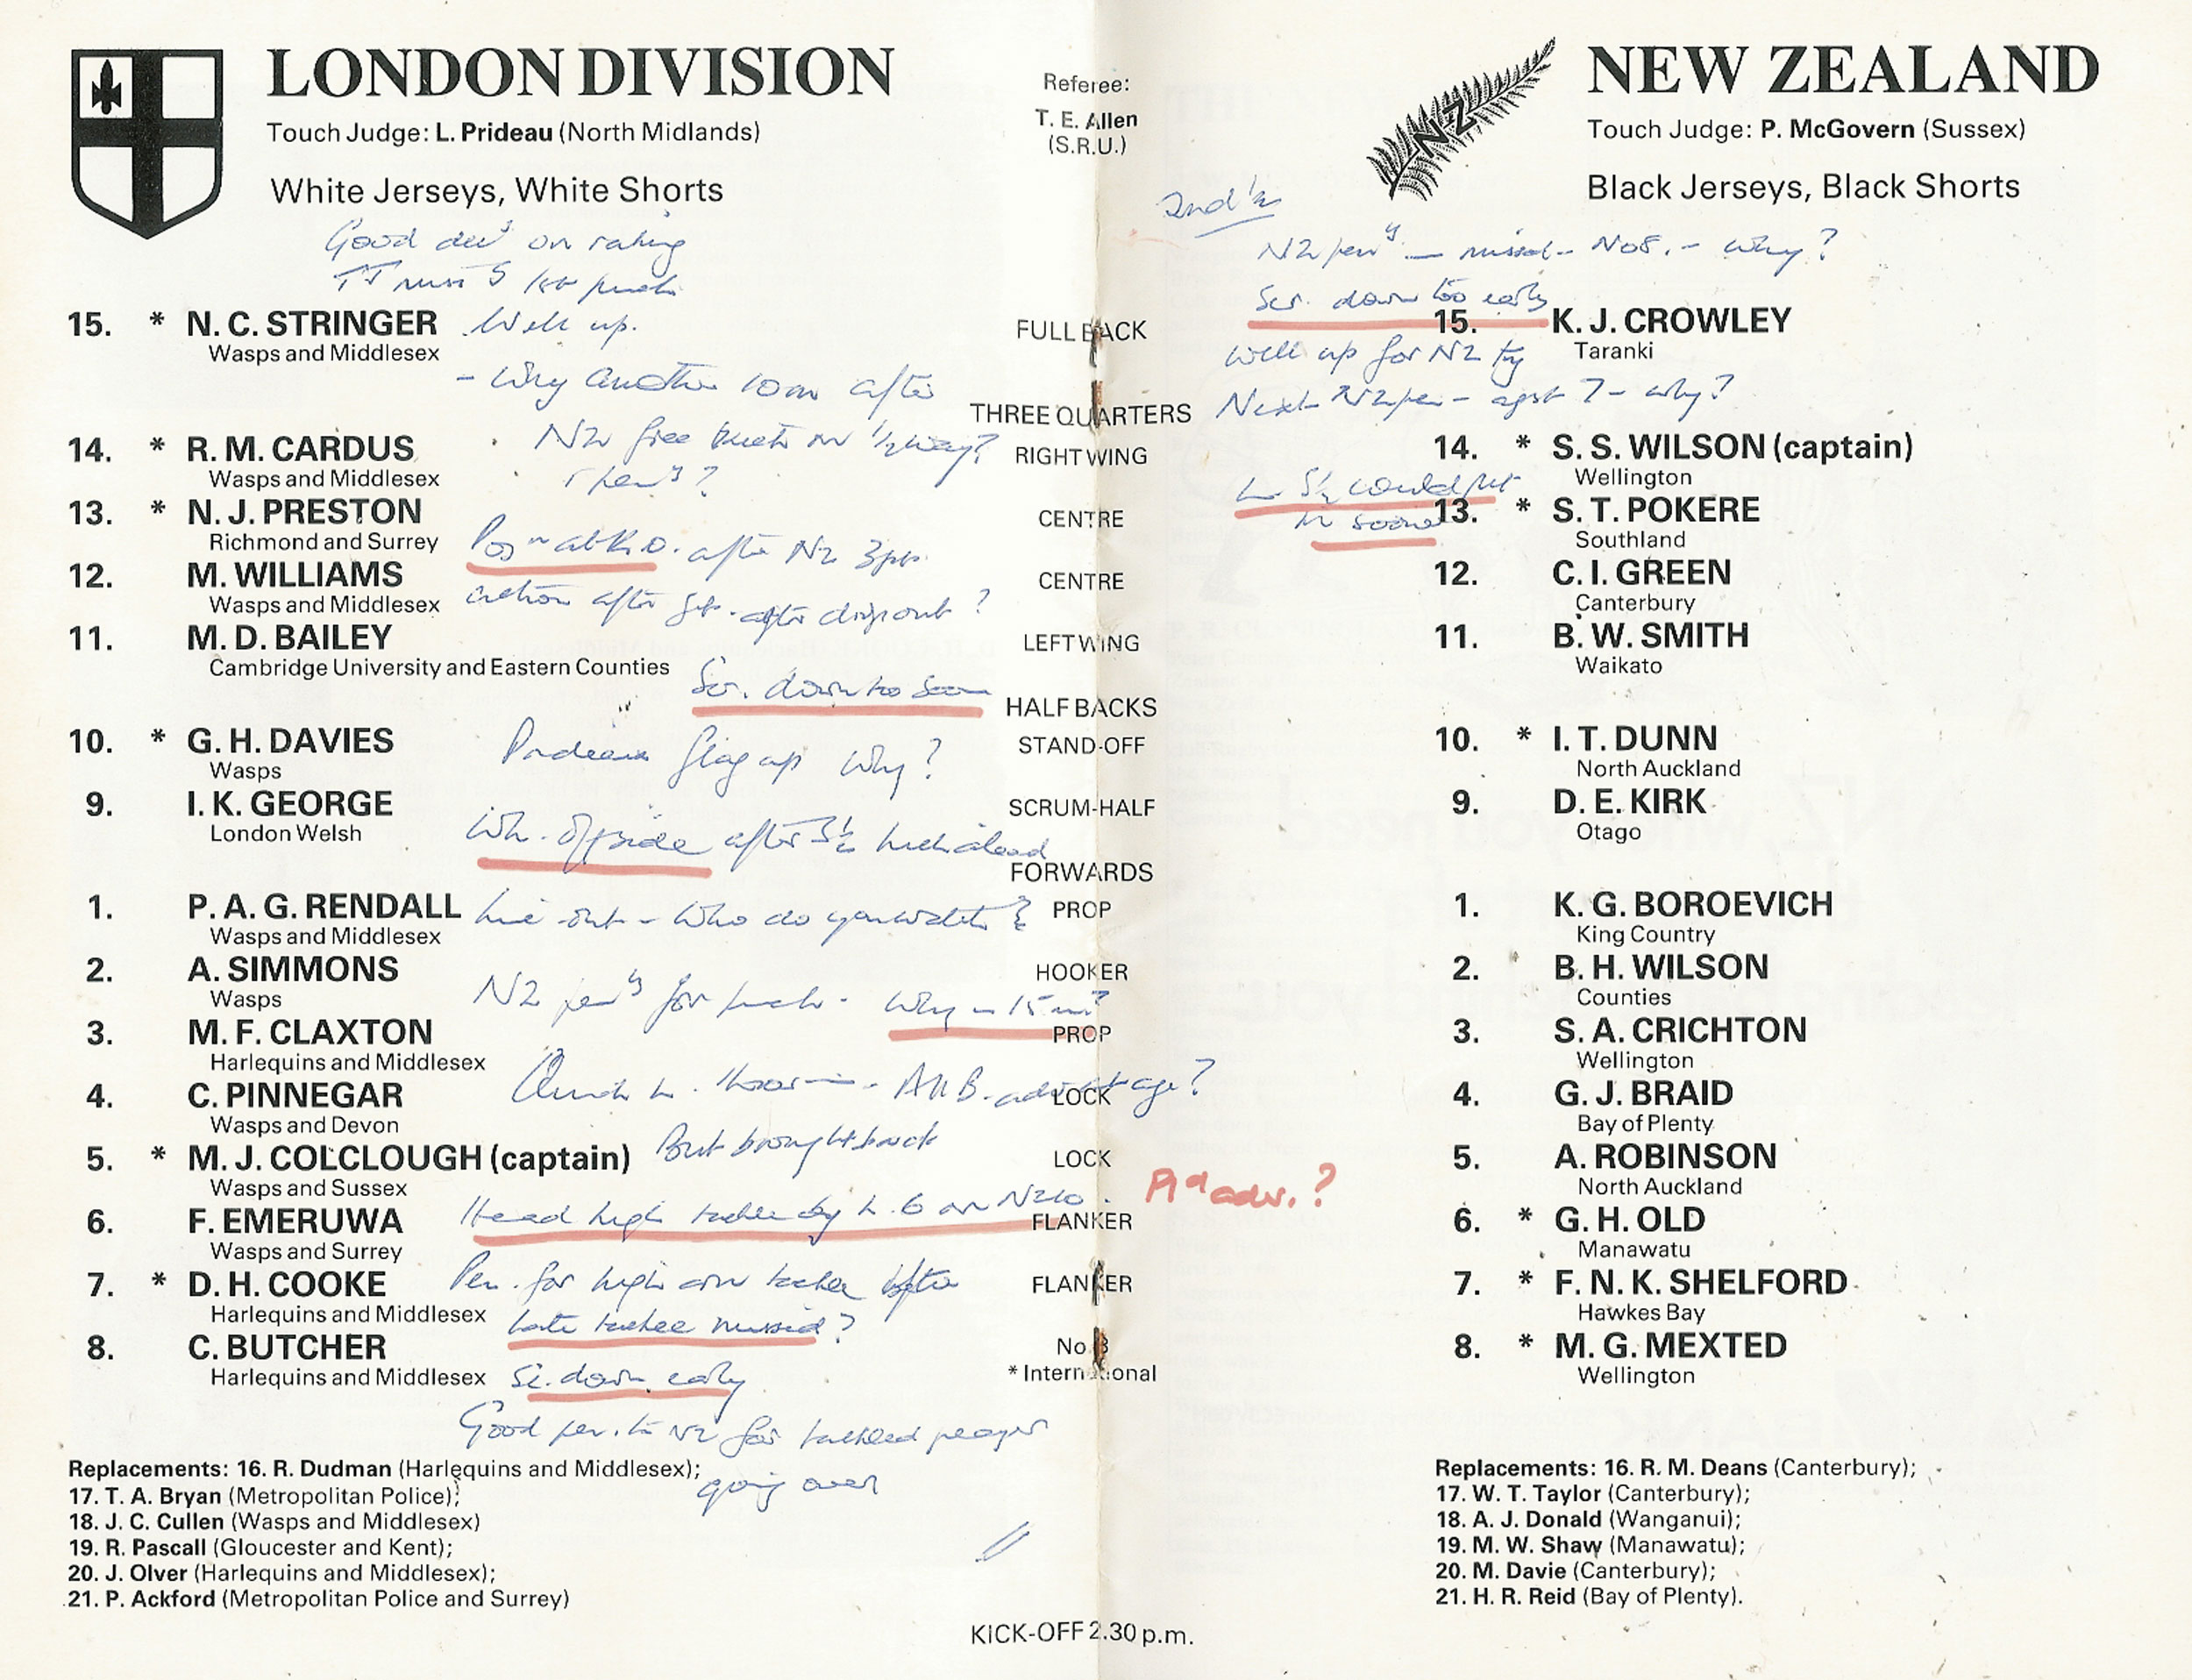 LONDON DIVISION
Touch Judge: L. Prideau (North Midlands)
White Jerseys, White Shorts
Good on
Well up.
- Why another 10m after
NZ free kick on 1/2 way?
15. * N. C. STRINGER
Wasps and Middlesex
14. * R. M. CARDUS
Wasps and Middlesex
13. * N. J. PRESTON
Richmond and Surrey
12. M. WILLIAMS
Wasps and Middlesex
11. M. D. BAILEY
Cambridge University and Eastern Counties
10. * G. H. DAVIES
Wasps
9. I. K. GEORGE
London Welsh
1. P. A. G. RENDALL
Wasps and Middlesex
2. A. SIMMONS
Wasps
3. M. F. CLAXTON
Harlequins and Middlesex
4. C. PINNEGAR
Wasps and Devon
5. * M. J. COLCLOUGH (captain)
Wasps and Sussex
6. F. EMERUWA
Wasps and Surrey
7. * D. H. COOKE
Harlequins and Middlesex
8. C. BUTCHER
Harlequins and Middlesex
Posn at K.O. after NZ 3pts
action after after dropout?
Scr. down too soon
Prideau flag up Why?
Wh. offside after kick ahead
Line-out - Who do you watch?
NZ peny for punch. Why - 15m?
advantage?
But brought back
Head high tackle by L. 6 on NZ10.
Pen. for high arm tackle after
late tackle missed?
Sc. down early
Good pen. to NZ for tackled player
going over
Replacements: 16. R. Dudman (Harlequins and Middlesex);
17. T. A. Bryan (Metropolitan Police);
18. J. C. Cullen (Wasps and Middlesex)
19. R. Pascall (Gloucester and Kent);
20. J. Olver (Harlequins and Middlesex);
21. P. Ackford (Metropolitan Police and Surrey)
Referee:
T. E. Allen
(S.R.U.)
FULL BACK
THREE QUARTERS
RIGHT WING
CENTRE
CENTRE
LEFT WING
HALF BACKS
STAND-OFF
SCRUM-HALF
FORWARDS
PROP
HOOKER
PROP
LOCK
LOCK
FLANKER
FLANKER
No. 8
* International
KICK-OFF 2.30 p.m.
NZ
NEW ZEALAND
Touch Judge: P. McGovern (Sussex)
Black Jerseys, Black Shorts
2nd ½
NZ peny - missed - No8. - why?
Scr. down too early
Well up for NZ try
Next NZ pen - agst 7 - why?
could put
in sooner
adv.?
15. K. J. CROWLEY
Taranki
14. * S. S. WILSON (captain)
Wellington
13. * S. T. POKERE
Southland
12. C. I. GREEN
Canterbury
11. B. W. SMITH
Waikato
10. * I. T. DUNN
North Auckland
9. D. E. KIRK
Otago
1. K. G. BOROEVICH
King Country
2. B. H. WILSON
Counties
3. S. A. CRICHTON
Wellington
4. G. J. BRAID
Bay of Plenty
5. A. ROBINSON
North Auckland
6. * G. H. OLD
Manawatu
7. * F. N. K. SHELFORD
Hawkes Bay
8. * M. G. MEXTED
Wellington
Replacements: 16. R. M. Deans (Canterbury);
17. W. T. Taylor (Canterbury);
18. A. J. Donald (Wanganui);
19. M. W. Shaw (Manawatu);
20. M. Davie (Canterbury);
21. H. R. Reid (Bay of Plenty).